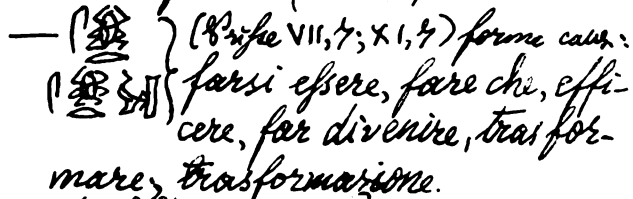 — } (Prisse VII, 7; XI, 7) forme caus:
farsi essere, fare che, effi-
cere, far divenire, trasfor-
mare, trasformazione.